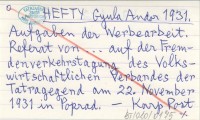 HEFTY Gyula Andor 1931.
Aufgaben der Werbearbeit.
Referat von ... auf der Frem-
denverkehrstagung des Volks-
wirtschaftlichen Verbandes der
Tatragegend am 22. November
1931 in Poprad. — Karp. Post